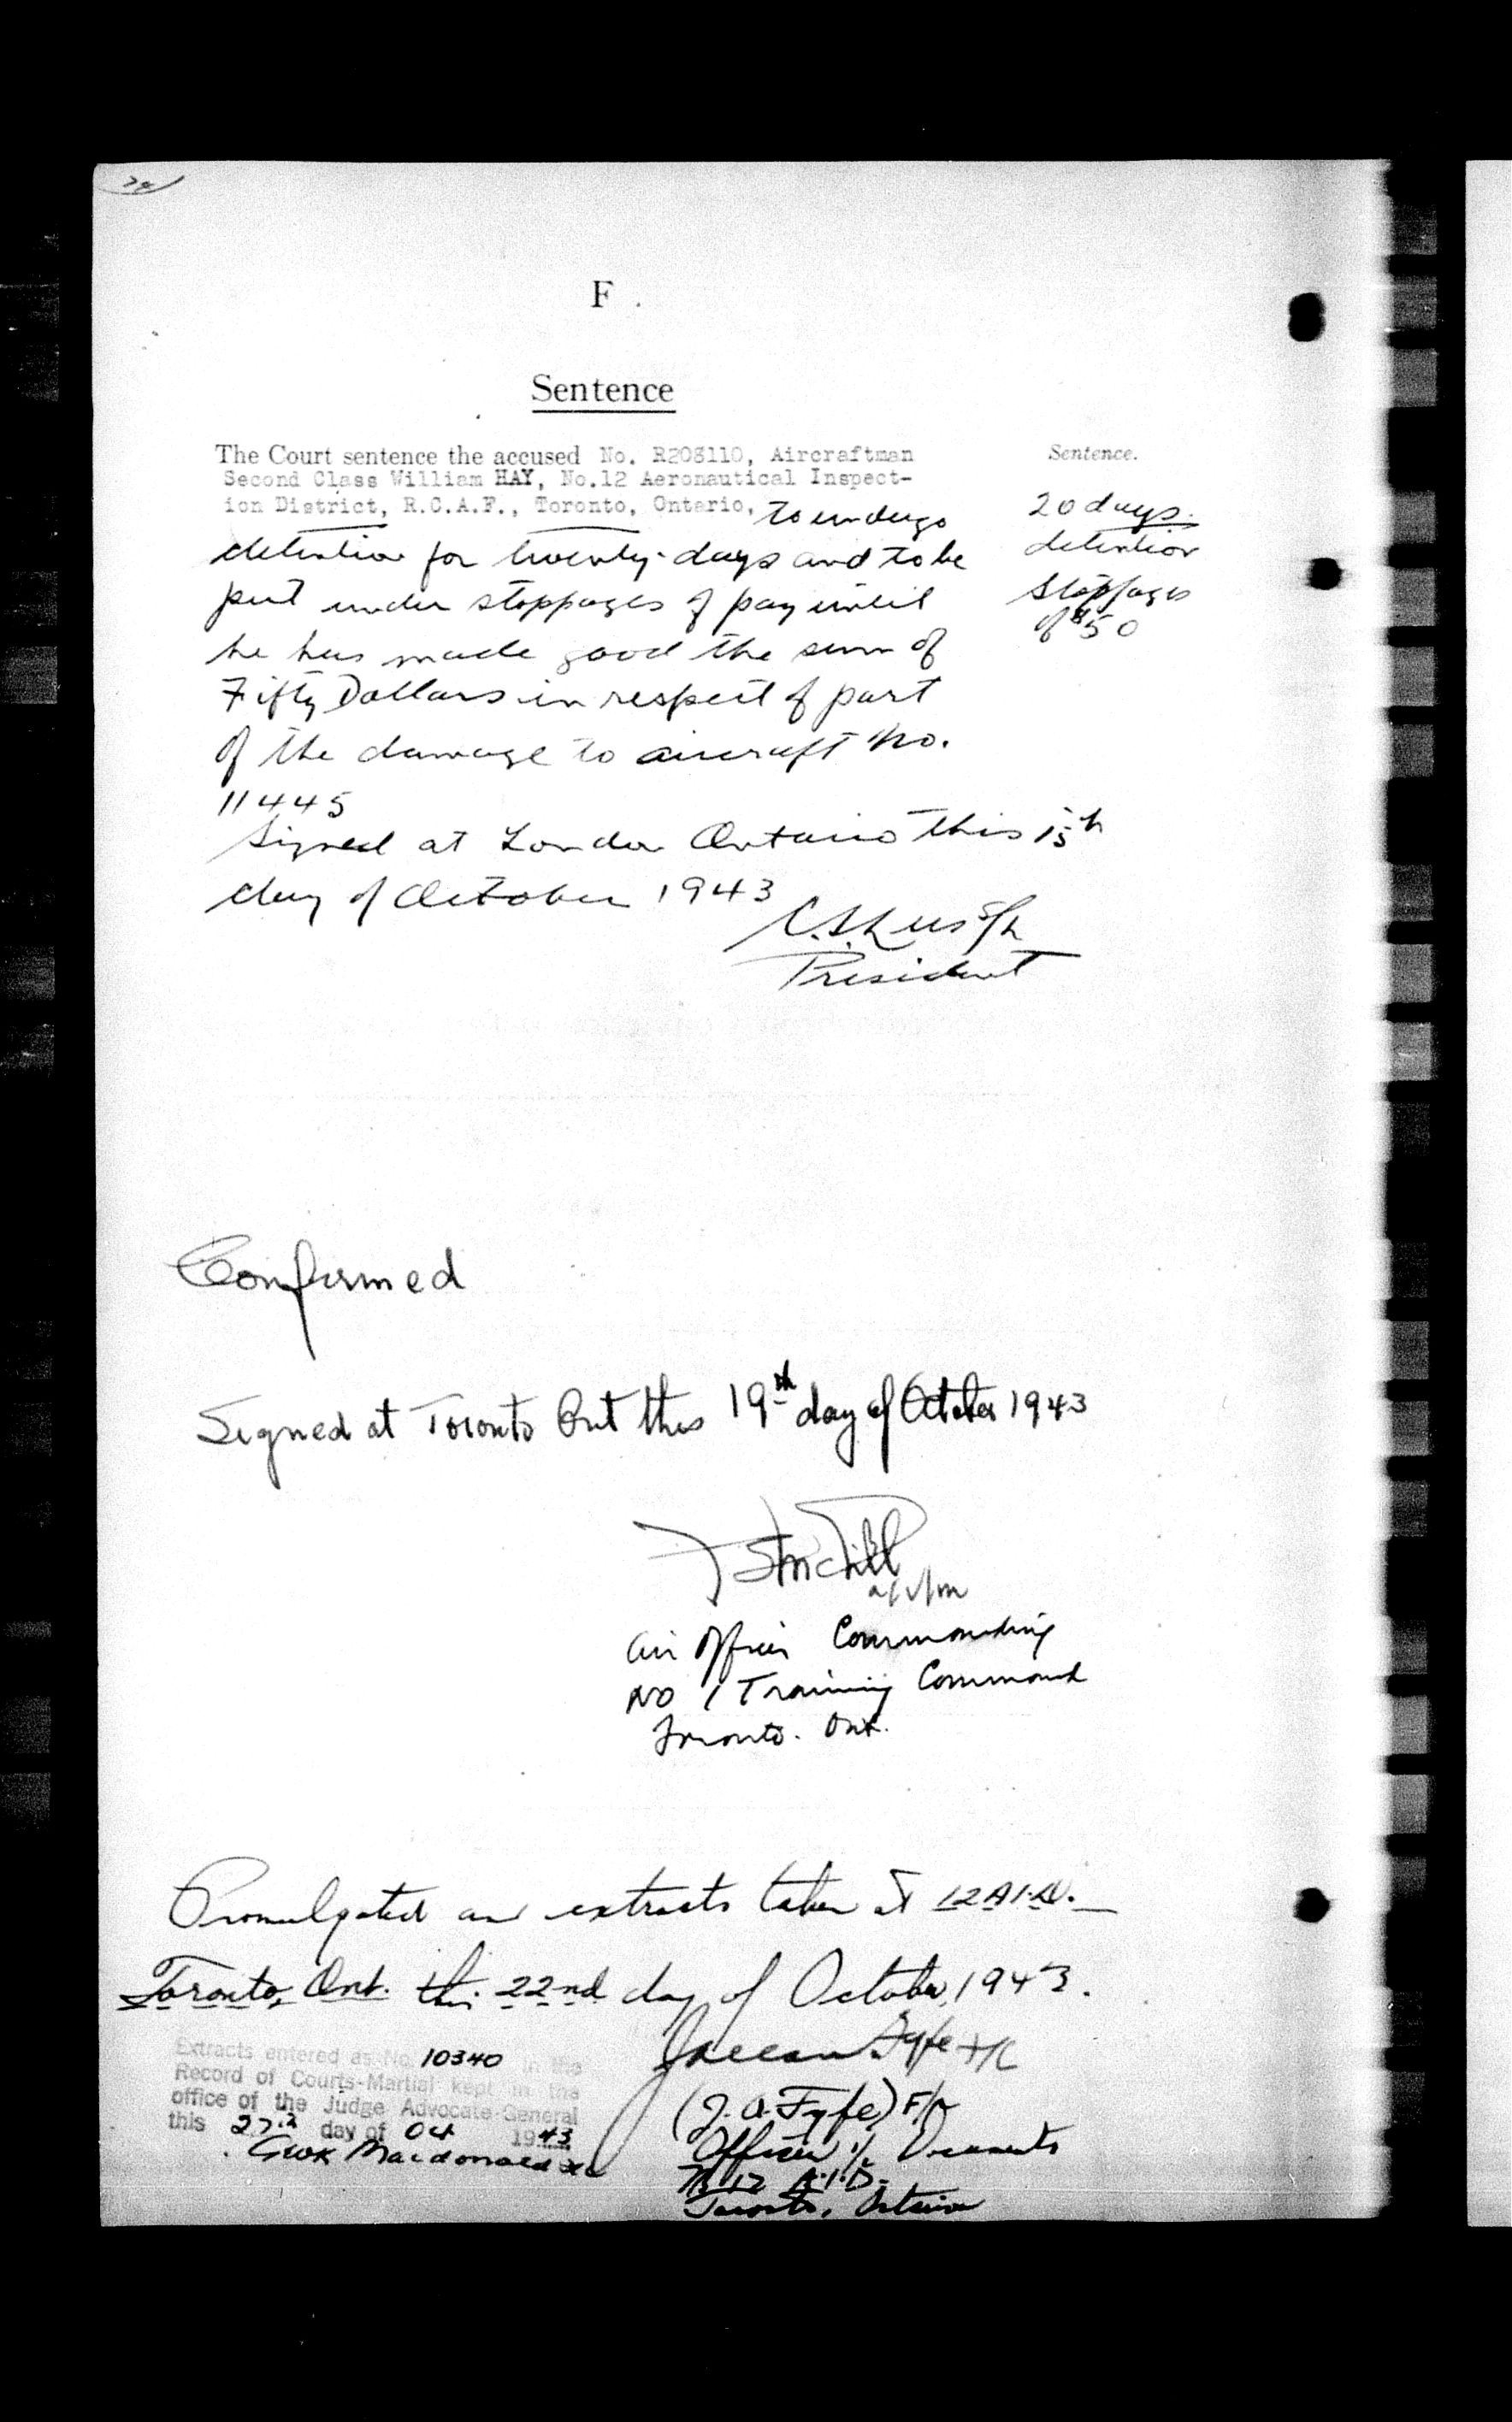 F
Sentence
The Court sentence the accused No. R203110, Aircraftman
Second Class William HAY, No.12 Aeronautical Inspect-
ion District, R.C.A.F., Toronto, Ontario, to undergo
detention for twenty days and to be
put under stoppages of pay until
he has made good the sum of
Fifty Dollars in respect of part
of the damage to aircraft No.
11445
Signed at London Ontario this 15th
day of October 1943
President
Sentence.
20 days.
detention
stoppages
of $50
Confirmed
Signed at Toronto Ont this 19th day of October 1943
a/v/m
Air Officer Commanding
No 1 Training Command
Toronto. Ont.
Promulgated and extracts taken at 12 A.I.D.
Toronto, Ont. this 22nd day of October, 1943.
Fyfe
(J. A. Fyfe) F/O
Officer i/c Documents
No 12 A.I.D.
Toronto, Ontario
Extracts entered as No. 10340 in the
Record of Courts-Martial kept in the
office of the Judge Advocate-General
this 27th day of Oct 1943
Macdonald